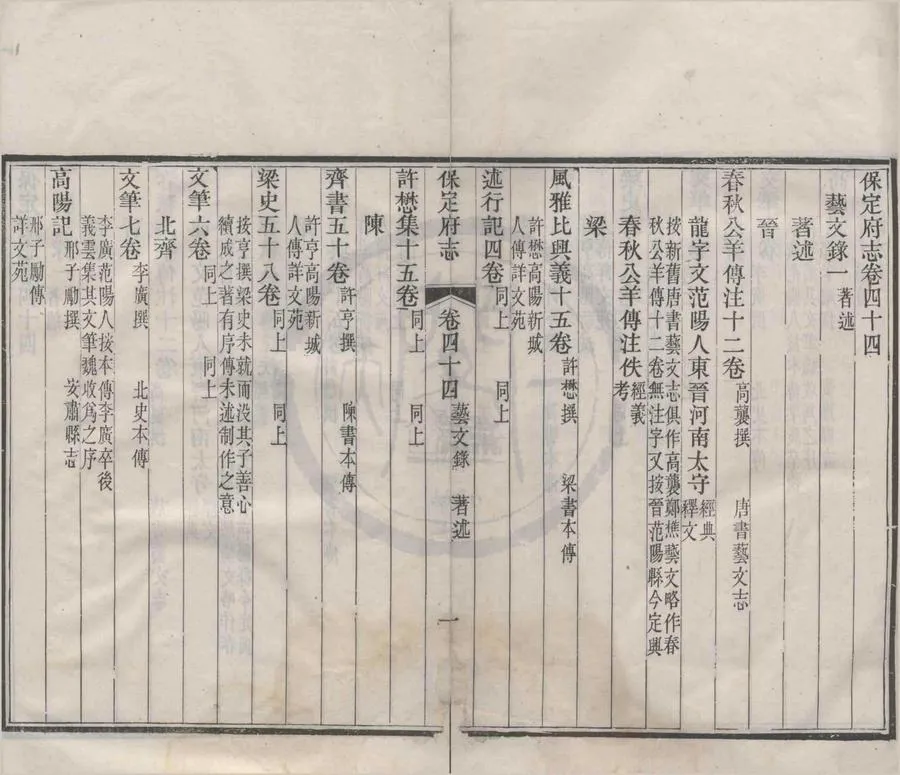 保定府志卷四十四
藝文錄一 著述
著述
晉
春秋公羊傳注十二卷 高襲撰 唐書藝文志
龍字文范陽人東晉河南太守 經典
釋文
按新舊唐書藝文志俱作高襲鄭樵藝文略作春
秋公羊傳十二卷無注字又按晉范陽縣今定興
春秋公羊傳注佚 經義
考
梁
風雅比興義十五卷 許懋撰 梁書本傳
許懋高陽新城
人傳詳文苑
述行記四卷 同上 同上
保定府志 卷四十四 藝文錄 著述 一
許懋集十五卷 同上 同上
陳
齊書五十卷 許亨撰 陳書本傳
許亨高陽新城
人傳詳文苑
梁史五十八卷 同上 同上
按亨撰梁史未就而没其子善心
續成之著有序傳未述制作之意
文筆六卷 同上 同上
北齊
文筆七卷 李廣撰 北史本傳
李廣范陽人按本傳李廣卒後
義雲集其文筆魏收爲之序
高陽記 邢子勵撰 安肅縣志
邢子勵傳
詳文苑